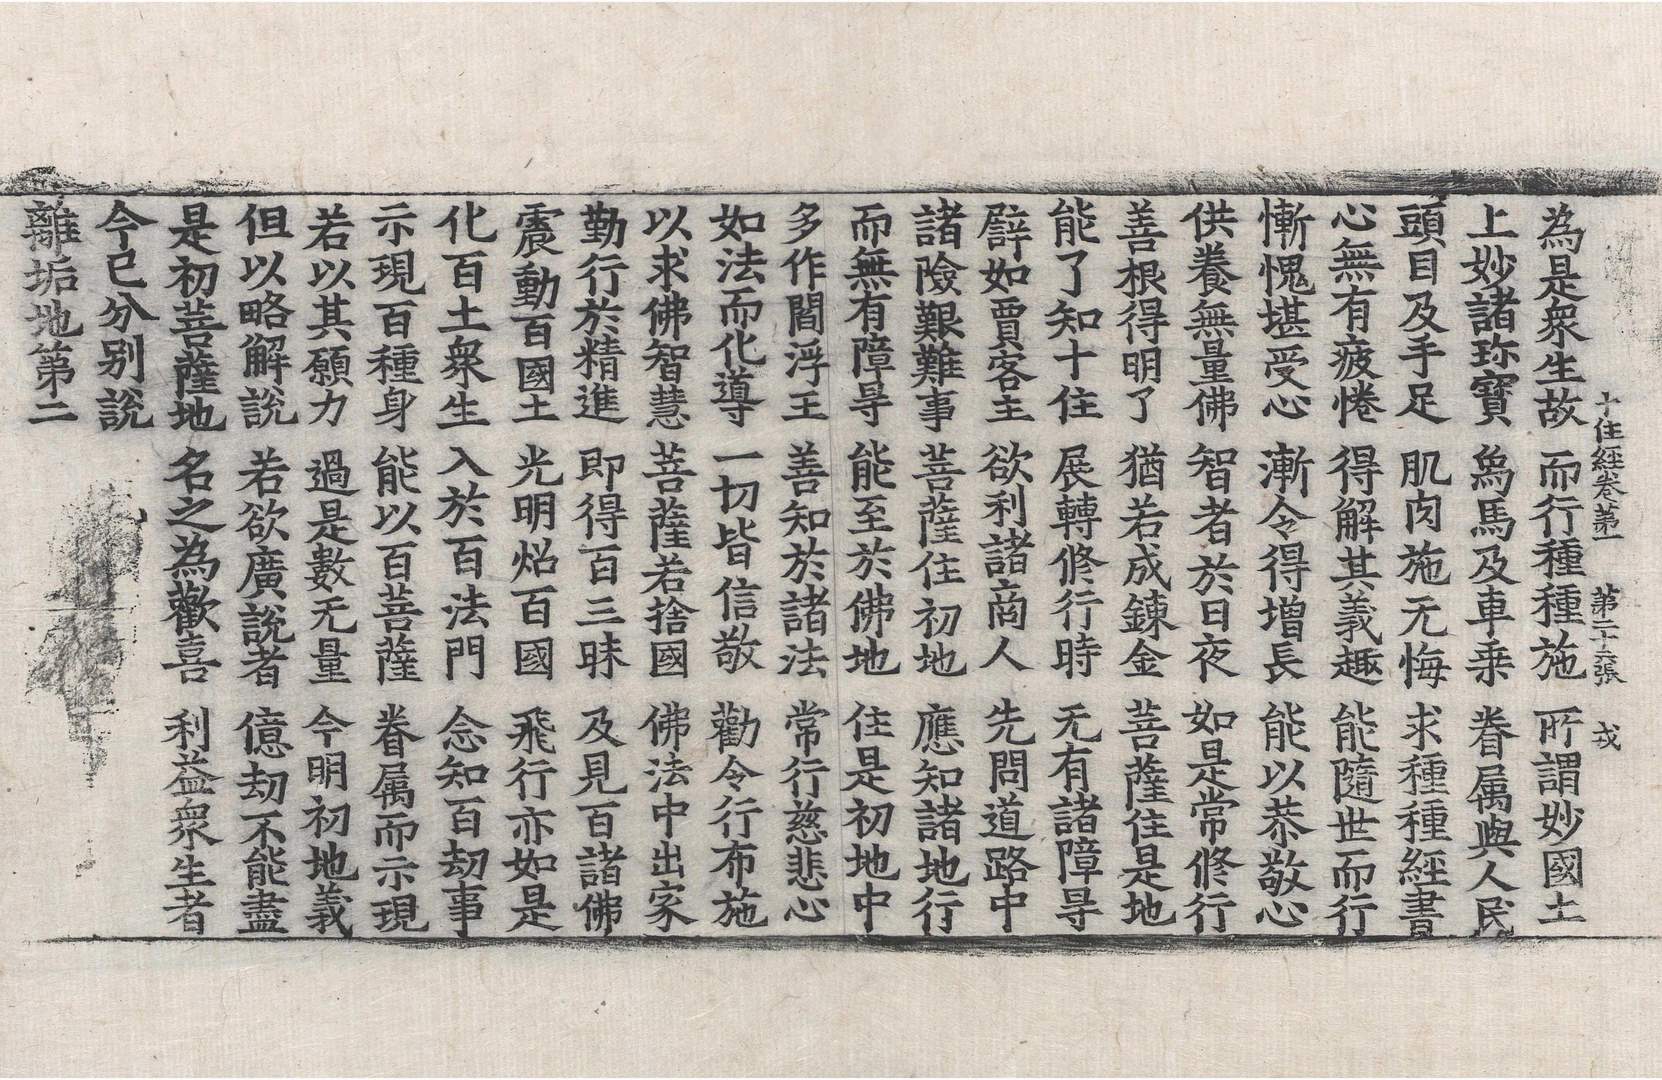 十住經卷第一 第二十六張 戎
為是衆生故 而行種種施 所謂妙國土
上妙諸珎寶 烏馬及車乘 眷属與人民
頭目及手足 肌肉施无悔 求種種經書
心無有疲惓 得解其義趣 能隨世而行
慚愧堪受心 漸令得增長 能以恭敬心
供養無量佛 智者於日夜 如是常修行
善根得明了 猶若成鍊金 菩薩住是地
能了知十住 展轉修行時 无有諸障㝵
譬如賈客主 欲利諸商人 先問道路中
諸險艱難事 菩薩住初地 應知諸地行
而無有障㝵 能至於佛地 住是初地中
多作閻浮王 善知於諸法 常行慈悲心
如法而化導 一切皆信敬 勸令行布施
以求佛智慧 菩薩若捨國 佛法中出家
勤行於精進 即得百三昧 及見百諸佛
震動百國土 光明炤百國 飛行亦如是
化百土衆生 入於百法門 念知百劫事
示現百種身 能以百菩薩 眷属而示現
若以其願力 過是數无量 今明初地義
但以略解説 若欲廣説者 億劫不能盡
是初菩薩地 名之為歡喜 利益衆生者
今已分别説
離垢地第二